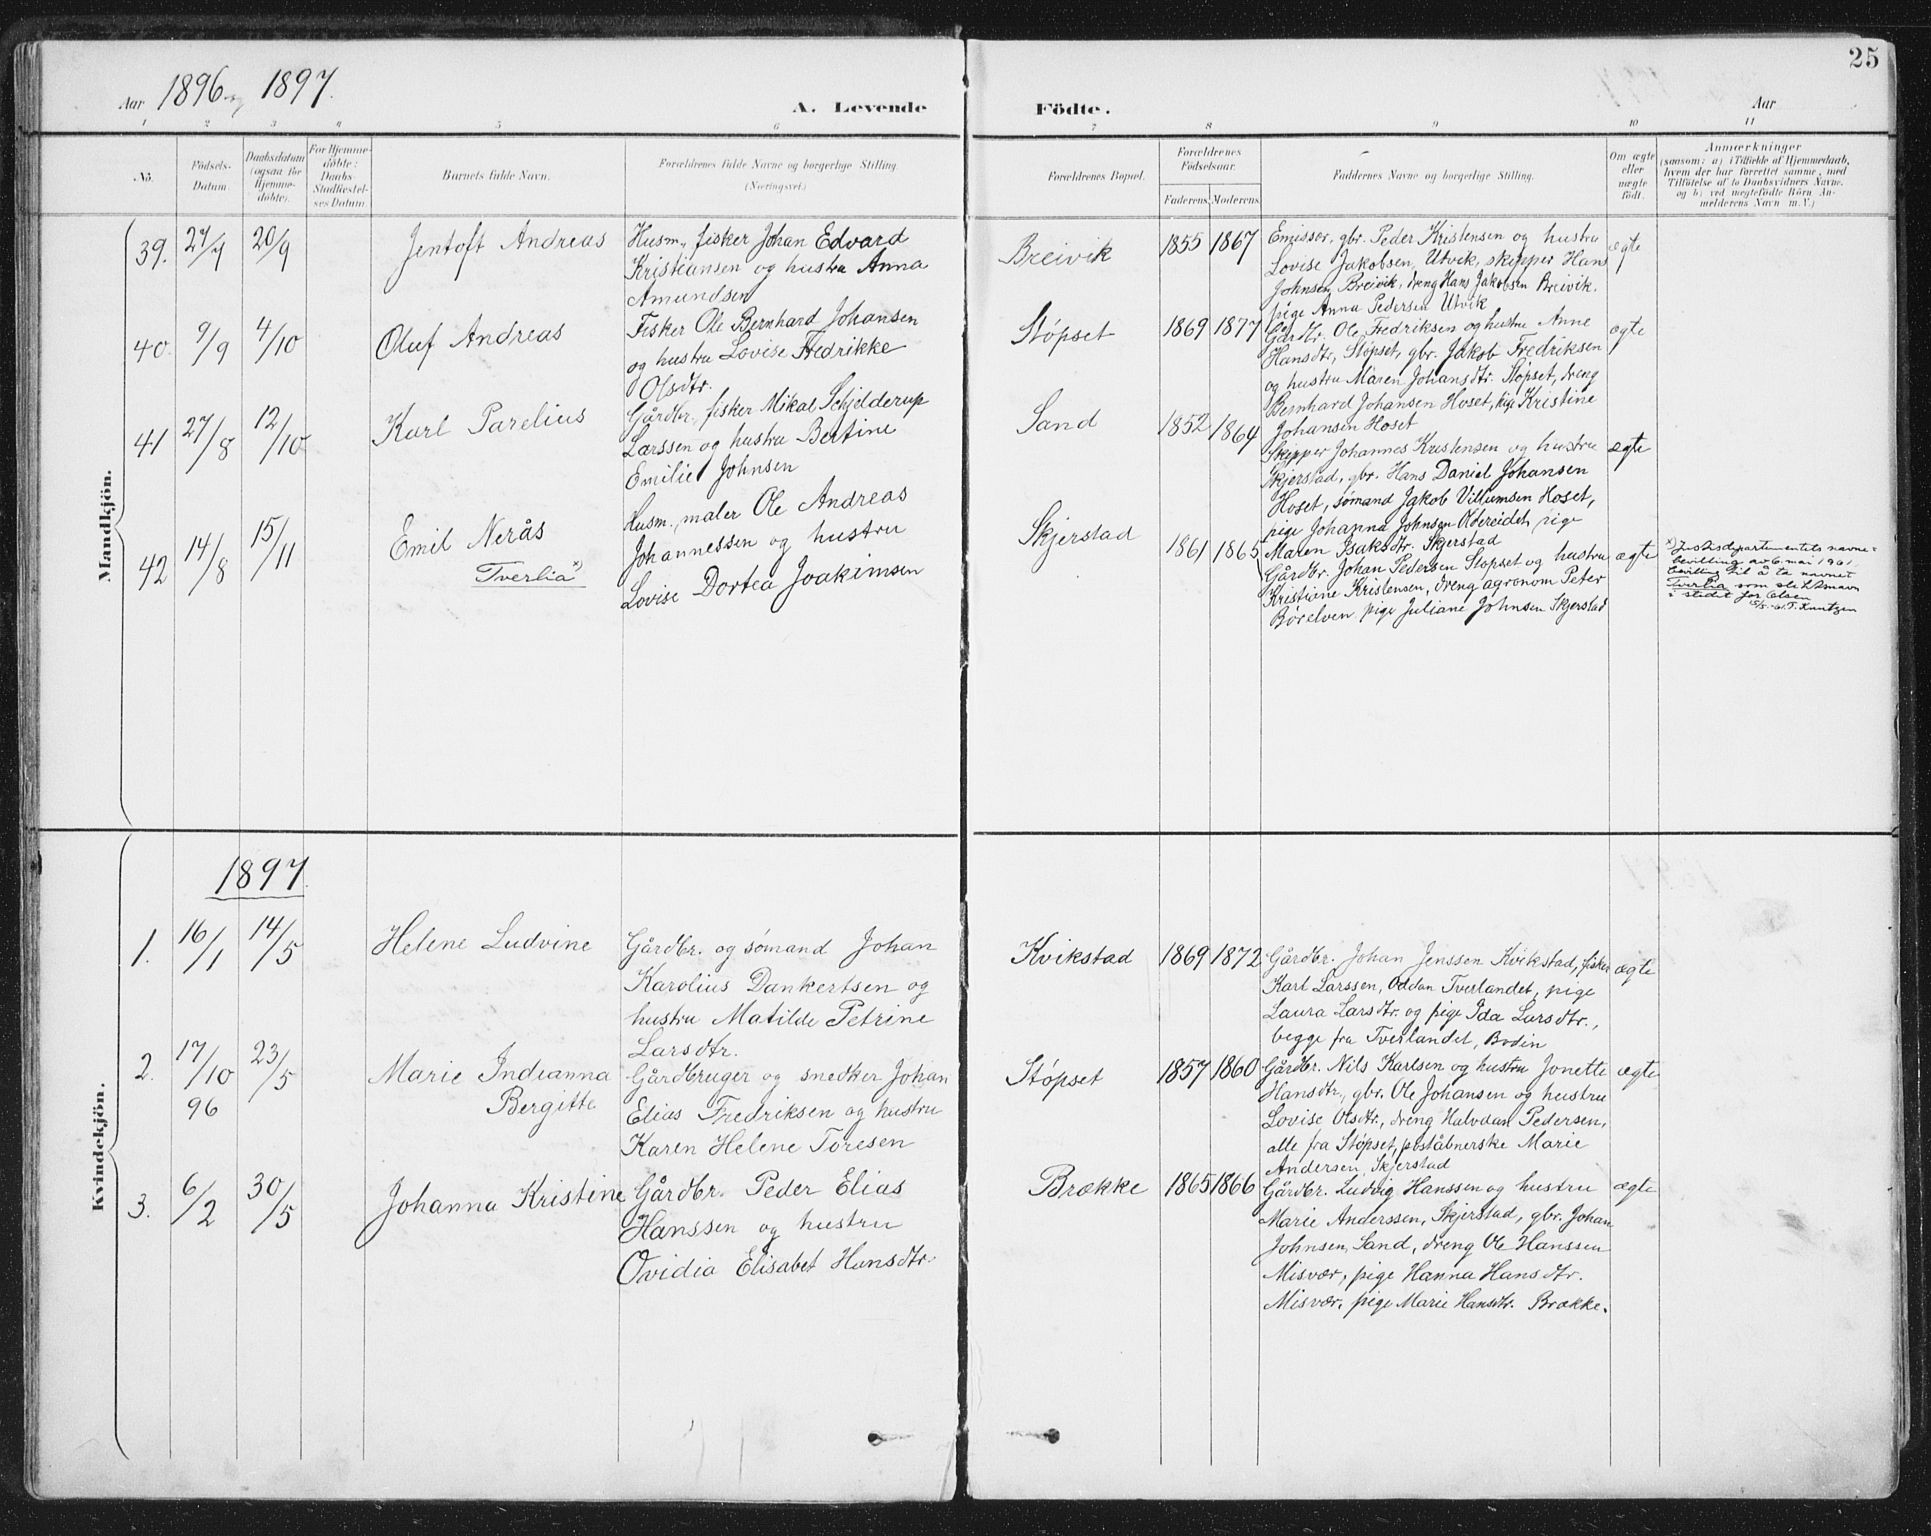 25
Aar 1896 og 1897.
A. Levende
Födte.
Aar
1 2 3 4 5 6 7 8 9 10 11
No.
Födsels-Datum
Daabsdatum (ogsaa for Hjemmedöbte).
For Hjemmedöbte: Daabs-Stadfæstelses Datum
Barnets fulde Navn.
Forældrenes fulde Navne og borgerlige Stilling. (Næringsvei.)
Forældrenes Bopæl.
Forældrenes Födselsaar.
Faderens. Moderens.
Faddernes Navne og borgerlige Stilling.
Om ægte eller uægte födt.
Anmærkninger
(saasom: a) i Tilfælde af Hjemmedaab,
hvem der har forrettet samme, med
Tilföielse af to Daabsvidners Navne.
og b) ved uægtefödte Börn An-
melderens Navn m. V.)
Mandkjön.
39. 27/7 20/9 Jentoft Andreas
Husm., fisker Johan Edvard
Kristiansen og hustru Anna
Amundsen
Breivik 1855 1867
Emissær, gbr. Peder Kristensen og hustru
Lovise Jakobsen, Utvik, skipper Hans
Johnsen Breivik, dreng Hans Jakobsen Breivik.
pige Anna Pedersen Utvik
ægte
40. 9/9 4/10 Oluf Andreas
Fisker Ole Bernhard Johansen
og hustru Lovise Fredrikke
Olsdtr.
Støpset 1869 1877
Gårdbr. Ole Fredriksen og hustru Anne
Hansdtr, Støpset, gbr. Jakob Fredriksen
og hustru Maren Johansdtr. Støpset, dreng
Bernhard Johansen Hoset, pige Kristine
Johansen Hoset
ægte
41 27/8 12/10 Karl Parelius
Gårdbr., fisker Mikal Schjelderup
Larssen og hustru Bertine
Emilie Johnsen
Sand 1852 1864
Skipper Johannes Kristensen og hustru
Skjerstad, gbr. Hans Daniel Johansen
Hoset, sømand Jakob Villumsen Hoset,
pige Johanna Johnsen Oldereidet, pige
Maren Isaksdtr. Skjerstad
ægte
42 14/8 15/11 Emil Nerås
Tverlia x)
Husm., maler Ole Andreas
Johannessen og hustru
Lovise Dortea Joakimsen
Skjerstad 1861 1865
Gårdbr. Johan Pedersen Støpset og hustru
Kristiane Kristensen, dreng agronom Peter
Børelven pige Juliane Johnsen Skjerstad
ægte
x) Justisdepartementets navne-
bevilling av 6. mai 1961.
bevilling til å ta navnet
Tverlia som slektsnavn
i stedet for Olsen
Kvindekjön.
1897.
1. 16/1 14/5 Helene Ludvine
Gårdbr. og sømand Johan
Karolius Dankertsen og
hustru Matilde Petrine
Larsdtr.
Kvikstad 1869 1872
Gårdbr. Johan Jenssen Kvikstad, fisker
Karl Larssen, Oddan Tverlandet, pige
Laura Larsdtr. og pige Ida Larsdtr.,
begge fra Tverlandet, Bodin
ægte
2. 17/10 96 23/5 Marie Indianna
Bergitte
Gårdbruger og snedker Johan
Elias Fredriksen og hustru
Karen Helene Toresen
Støpset 1857 1860
Gårdbr. Nils Karlsen og hustru Jonette
Hansdtr., gbr. Ole Johansen og hustru
Lovise Olsdtr., dreng Halvdan Pedersen,
alle fra Støpset, poståbnerske Marie
Andersen, Skjerstad
ægte
3. 6/2 30/5 Johanna Kristine
Gårdbr. Peder Elias
Hanssen og hustru
Ovidia Elisabet Hansdtr.
Brække 1865 1866
Gårdbr. Ludvig Hanssen og hustru
Marie Anderssen, Skjerstad, gbr. Johan
Johnsen, Sand, dreng Ole Hanssen
Misvær, pige Hanna Hansdtr.
Misvær, pige Marie Hansdtr. Brække.
ægte